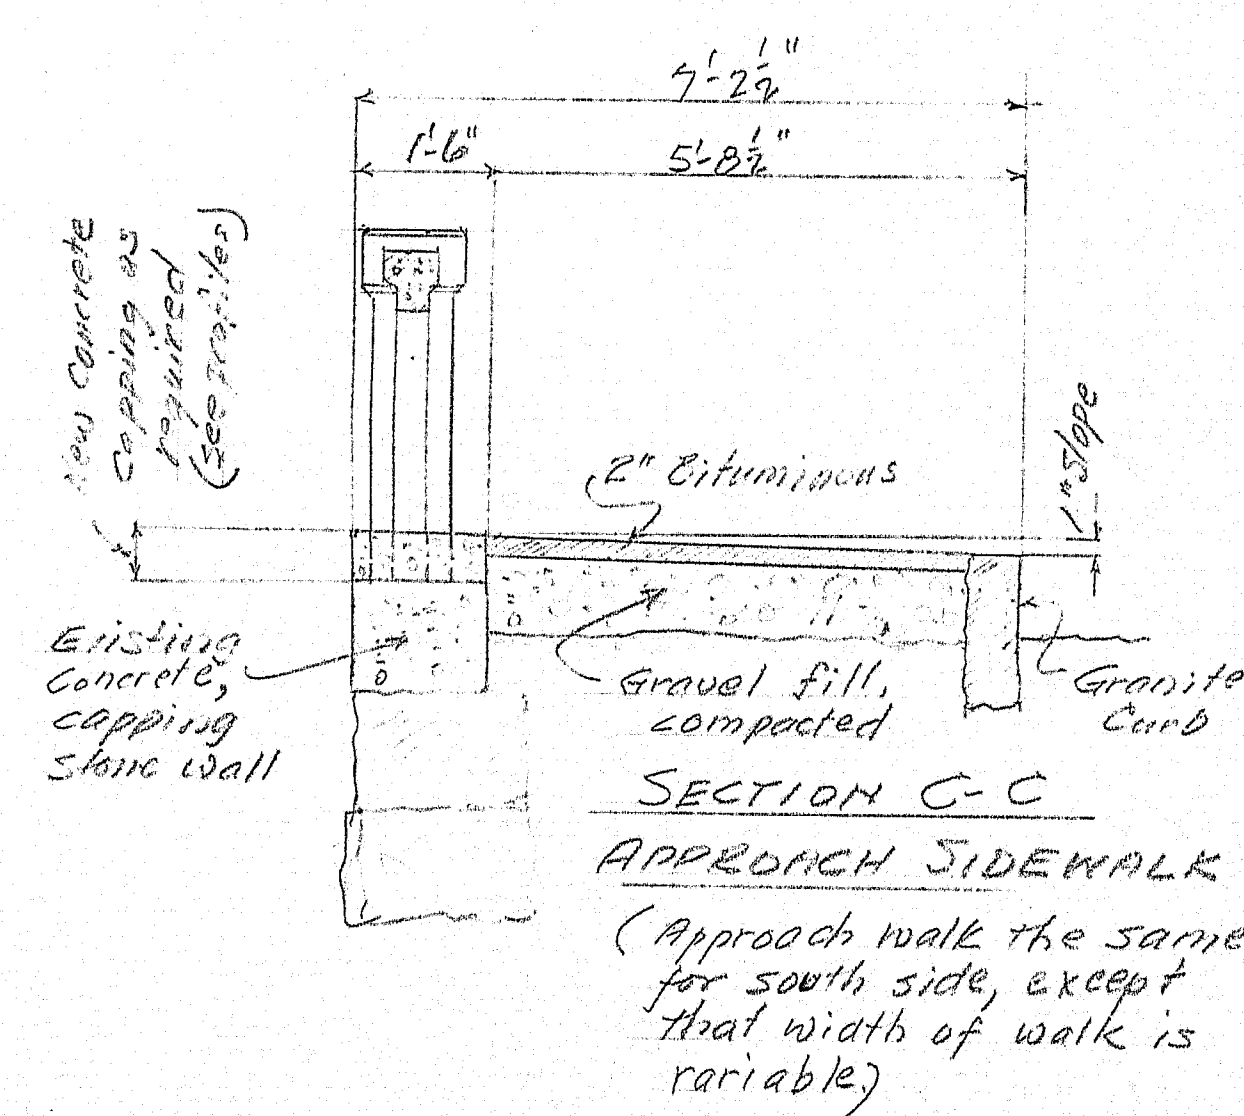 7'-2½"
1'-6"
5'-8½"
New Concrete
Capping as
required
(See profiles)
1" Slope
2" Bituminous
Existing
Concrete,
capping
Stone Wall
Gravel fill,
compacted
Granite
Curb
SECTION C-C
APPROACH SIDEWALK
(Approach walk the same
for south side, except
that width of walk is
variable.)